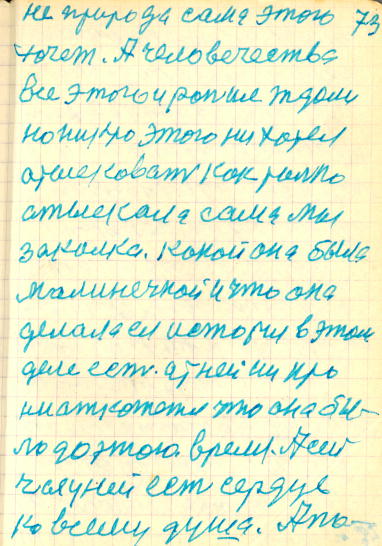 не природа сама этого 73
хочет. А человечества
все этого и раньше ждали
но никто этого ни хотел
атыековат как только
атыскала сама мы
заколка. какой она была
малинечкой и что она
делала ея история в этом
деле ест. а у ней ни про
ни она бы-
ло до этого время. А сей
час у ней ест сердце
ко всему душа. А по-